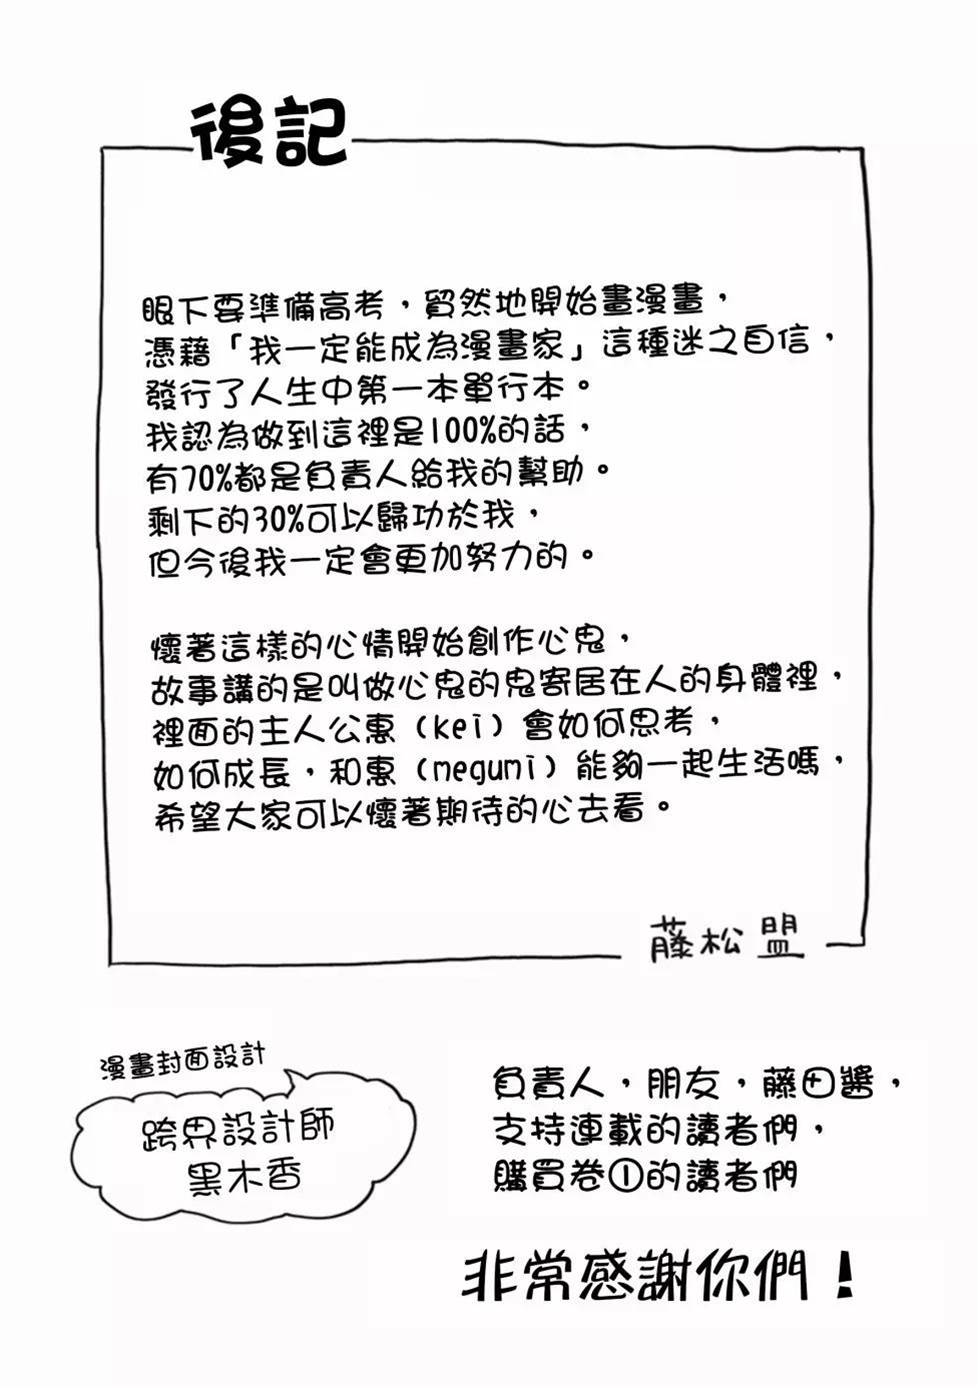 後記
眼下要準備高考，貿然地開始畫漫畫，
憑藉「我一定能成為漫畫家」這種迷之自信，
發行了人生中第一本單行本。
我認為做到這裡是100%的話，
有70%都是負責人給我的幫助。
剩下的30%可以歸功於我，
但今後我一定會更加努力的。
懷著這樣的心情開始創作心鬼，
故事講的是叫做心鬼的鬼寄居在人的身體裡，
裡面的主人公惠（kei）會如何思考，
如何成長，和惠（megumi）能夠一起生活嗎，
希望大家可以懷著期待的心去看。
藤松盟
漫畫封面設計
跨界設計師
黑木香
負責人，朋友，藤田醬，
支持連載的讀者們，
購買卷①的讀者們
非常感謝你們！